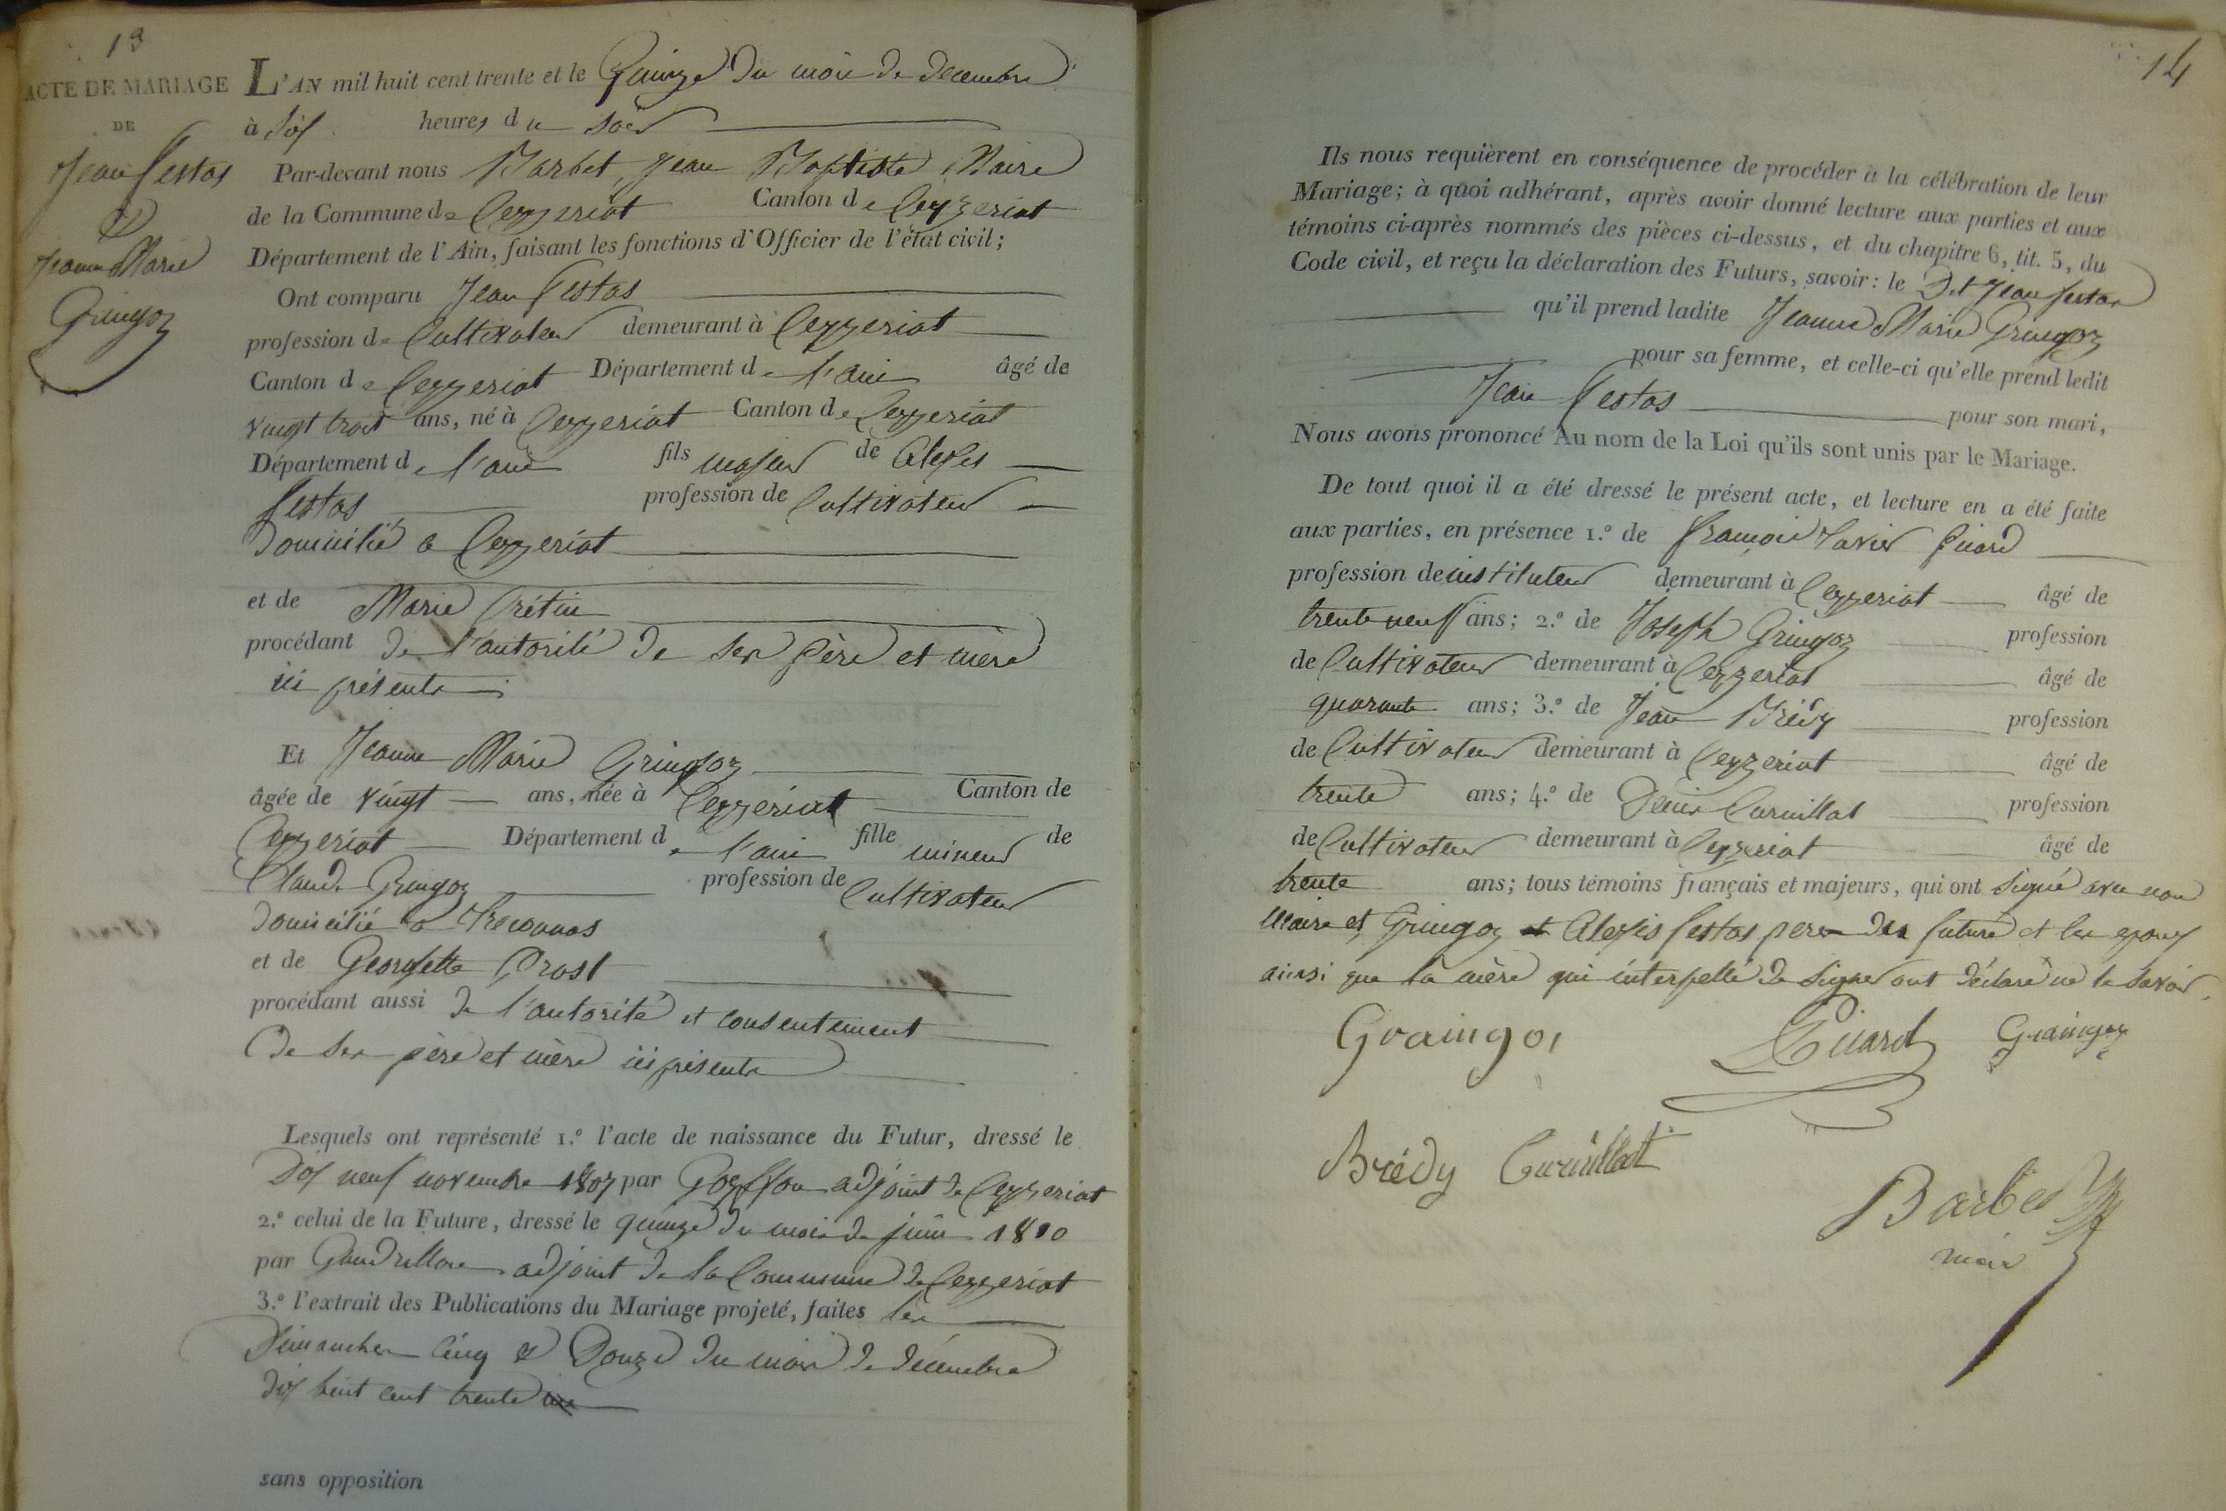 13
ACTE DE MARIAGE
DE
Jean Cestas
&
Jeanne Marie
Gringoz
L'AN mil huit cent trente et le Quinze du mois de décembre
à six heures du soir
Par-devant nous Barbet, Jean Baptiste, Maire
de la Commune de Ceyzeriat Canton de Ceyzeriat
Département de l'Ain, faisant les fonctions d'Officier de l'état civil;
Ont comparu Jean Cestas
profession de Cultivateur demeurant à Ceyzeriat
Canton de Ceyzeriat Département de l'ain âgé de
vingt trois ans, né à Ceyzeriat Canton de Ceyzeriat
Département de l'ain fils majeur de Alexis
Cestas profession de Cultivateur
Domicilié à Ceyzeriat
et de Marie Crétin
procédant de l'autorité de ses père et mère
ici présents
Et Jeanne Marie Gringoz
âgée de vingt ans, née à Ceyzeriat Canton de
Ceyzeriat Département de l'ain fille mineur de
Claude Gringoz profession de Cultivateur
Domicilié à
et de Georgette Prost
procédant aussi de l'autorité et consentement
De ses père et mère ici présents
Lesquels ont représenté 1.º l'acte de naissance du Futur, dressé le
Dix neuf novembre 1807 par adjoint de Ceyzeriat
2.º celui de la Future, dressé le quinze du mois de juin 1810
par adjoint de la Commune de Ceyzeriat
3.º l'extrait des Publications du Mariage projeté, faites les
Dimanches cinq & Douze du mois de décembre
dix huit cent trente
sans opposition
14
Ils nous requièrent en conséquence de procéder à la célébration de leur
Mariage; à quoi adhérant, après avoir donné lecture aux parties et aux
témoins ci-après nommés des pièces ci-dessus, et du chapitre 6, tit. 5, du
Code civil, et reçu la déclaration des Futurs, savoir: le Dt Jean Cestas
qu'il prend ladite Jeanne Marie Gringoz
pour sa femme, et celle-ci qu'elle prend ledit
Jean Cestas pour son mari,
Nous avons prononcé Au nom de la Loi qu'ils sont unis par le Mariage.
De tout quoi il a été dressé le présent acte, et lecture en a été faite
aux parties, en présence 1.º de François Xavier Puard
profession de instituteur demeurant à Ceyzeriat âgé de
trente neuf ans; 2.º de Joseph Gringoz profession
de Cultivateur demeurant à Ceyzeriat âgé de
quarante ans; 3.º de Jean Brédy profession
de Cultivateur demeurant à Ceyzeriat âgé de
trente ans; 4.º de Denis Curnillat profession
de Cultivateur demeurant à Ceyzeriat âgé de
trente ans; tous témoins français et majeurs, qui ont signé avec nous
Maire et Gringoz et Alexis Cestas père des futurs et les epoux
ainsi que la mère qui interpellé de signer ont déclaré ne le savoir.
Graingoz
Puard
Graingoz
Brédy
Curnillat
Barbet
mair